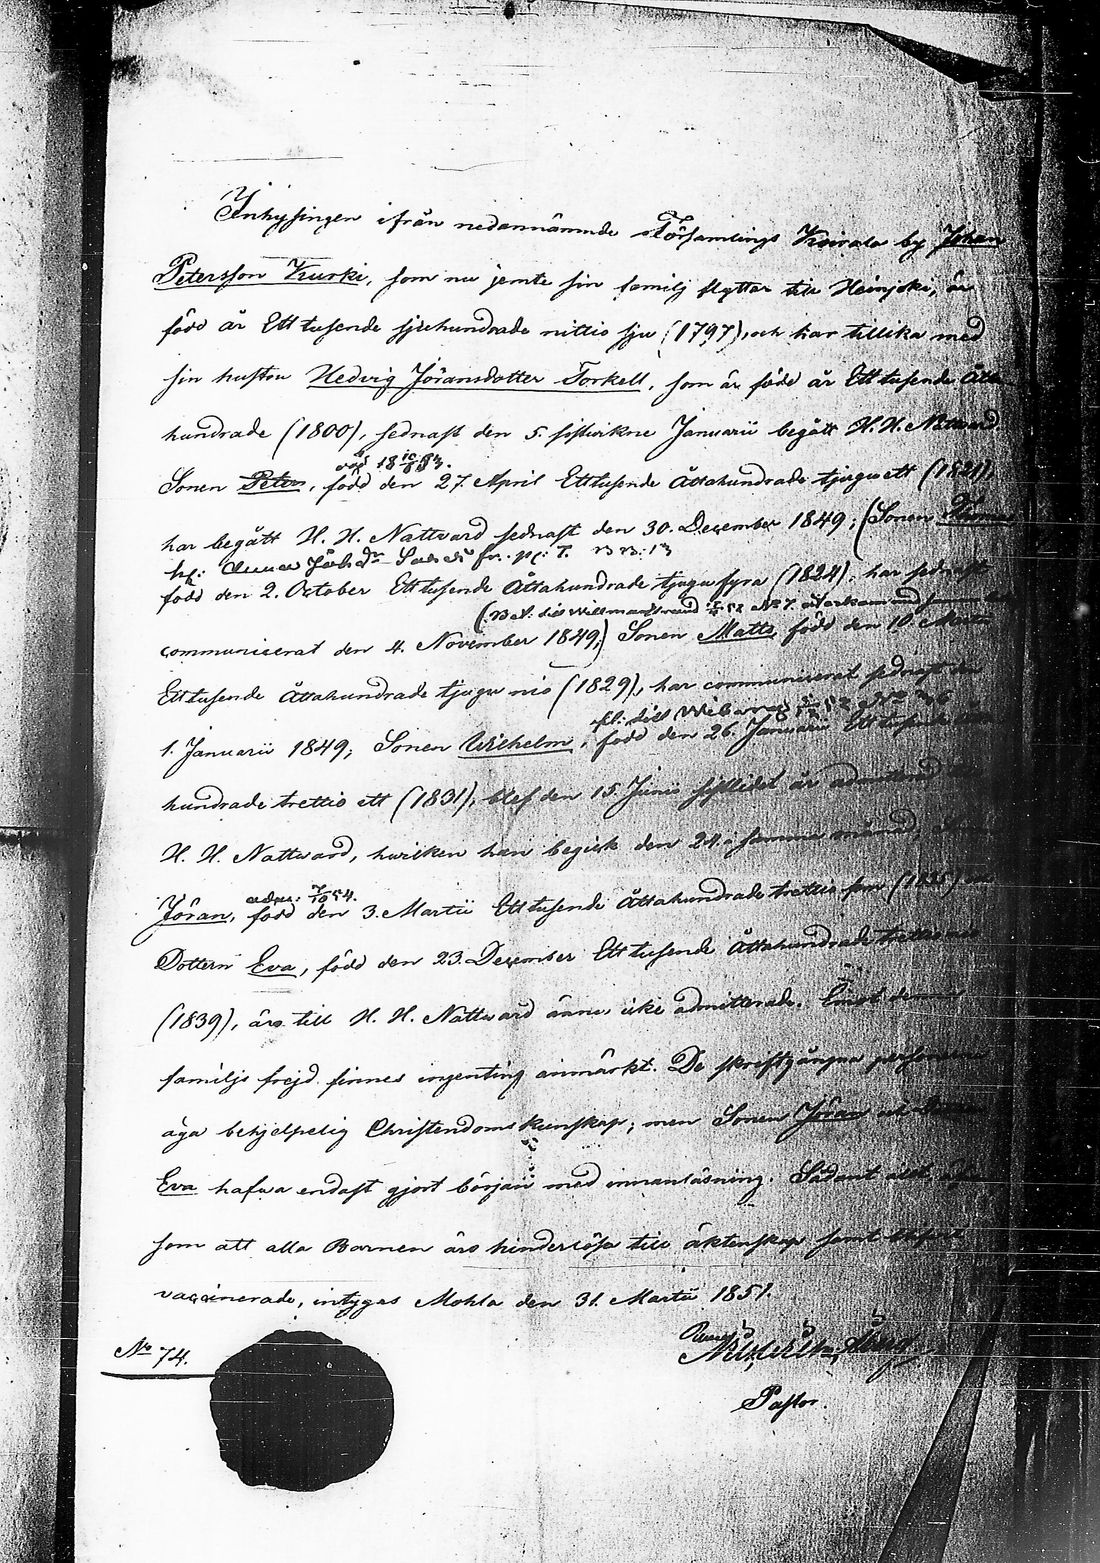 Inhysingen ifrån nedannämnde Församlings Koirala by Johan
Petersson Kurki, som nu jemte sin familj flyttar till Heinjoki, är
född år Ett tusende sjuhundrade nittio sju (1797), och har tillika med
sin hustru Hedvig Jöransdotter Torkell, som är född år Ett tusende åtta
hundrade (1800), sednast den 5. sistvikne Januarii begått H. H. Nattvard.
Sonen Peter, född den 27. April Ett tusende åttahundrade tjugu ett (1821),
har begått H. H. Nattvard sednast den 30. December 1849; (Sonen Thomas
född den 2. October Ett tusende åttahundrade tjugufyra (1824), har sednast
communicerat den 4. November 1849;) Sonen Matts, född den 10. Martii
Ett tusende åttahundrade tjugu nio (1829), har communicerat sednast den
1. Januarii 1849; Sonen Wilhelm, född den 26. Januarii Ett tusende åtta
hundrade trettio ett (1831), blef den 15. Junii sistlidet år admitterad till
H. H. Nattvard, hvilken han begick den 24. i samma månad; Sonen
Jöran, född den 3. Martii Ett tusende åttahundrade trettio fem (1835) och
Dottern Eva, född den 23. December Ett tusende åttahundrade trettio nio
(1839), äro till H. H. Nattvard ännu icke admitterade. Emot denna
familjs frejd finnes ingenting anmärkt. De skriftgångna personerna
äga behjelpelig Christendomskunskap; men Sonen Jöran och Dottern
Eva hafva endast gjort början med innanläsning. Sådant allt, äfven
som att alla Barnen äro hinderlösa till äktenskap samt
vaccinerade, intygas Mohla den 31. Martii 1851.
No 74.
Pastor.